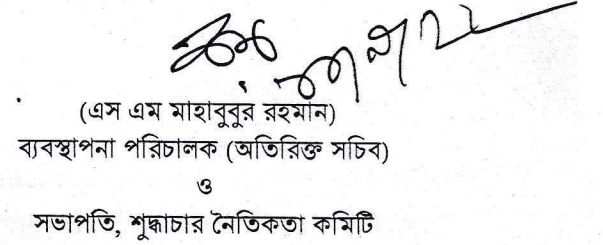 (এস এম মাহাবুবুর রহমান)
ব্যবস্থাপনা পরিচালক (অতিরিক্ত সচিব)
ও
সভাপতি, শুদ্ধাচার নৈতিকতা কমিটি